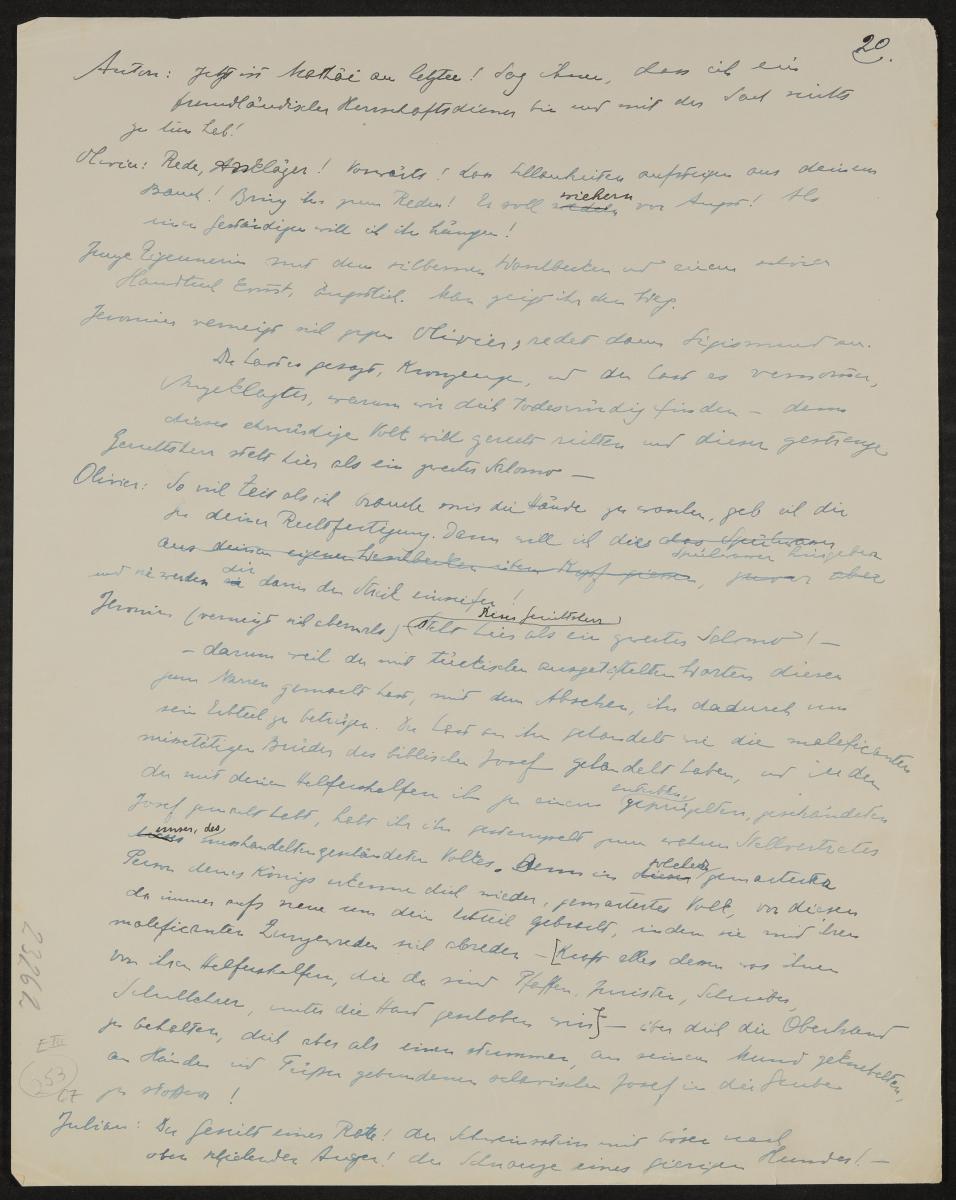 20.
Anton: Jetzt ist Mathäi am letzten! Sag ihnen, dass ich ein
fremdländischer Herrschaftsdiener bin und mit der Sach nichts
zu tun hab!
Olivier: Rede, Ankläger! Vorwärts! dass aufsteigen aus deinem
Bauch! Bring ihn zum Reden! Er soll wiehern vor Angst! Als
einen Geständigen will ich ihn hängen!
Junge Zigeunerin mit dem silbernen Waschbecken und einem
Handtuch kommt, ängstlich. Man zeigt ihr den Weg.
Jeronim verneigt sich gegen Olivier, redet dann Sigismund an.
Du hast es gesagt, Kronzeuge, und du hast es vernommen,
Angeklagter, warum wir dich todeswürdig finden – denn
dieses ehrwürdige Volk will gerecht richten und dieser gestrenge
Gerichtsherr steht hier als ein zweiter Salomo –
Olivier: So viel Zeit als ich brauche mir die Hände zu waschen, geb ich dir
zu deiner Rechtfertigung. Dann will ich dies das Spülwasser
Spülwasser hingeben
aus deinem eigenen Waschbecken übern Kopf giessen,
und sie werden dir dann den Strick einseifen!
Dieser Gerichtsherr
Jeronim (verneigt sich abermals) steht hier als ein zweiter Salomo! –
– darum weil du mit tückischen ausgetüftelten Worten diesen
zum Narren gemacht hast, mit dem Absehen, ihn dadurch um
sein Erbteil zu betrügen. Du hast an ihm gehandelt wie die maleficanten
missetätigen Brüder des biblischen Josef gehandelt haben, und indem
du mit deinen Helfershelfern ihn zu einem enterbten, geprügelten, geschändeten
Josef gemacht habt, habt ihr ihn gestempelt zum wahren Stellvertreter
unser, des misshandelten geschändeten Volkes. Denn in welcher gemarterten
Person deines Königs erkenne dich wieder, gemartertes Volk, von diesen
da immer aufs neue um dein Erbteil gebracht, indem sie mit ihren
maleficanten Zungenreden sich abreden – [Kraft alles dessen was ihnen
von ihren Helfershelfern, die da sind Pfaffen, Juristen, Schreiber,
Schullehrer, unter die Hand geschoben wird] – über dich die Oberhand
zu behalten, dich aber als einen stummen, an seinem Mund geknebelten,
an Händen und Füssen gebundenen sclavischen Josef in die Grube
zu stossen!
Julian: Du Gesicht einer Ratte! du Schweinsstirn mit bösen nach
oben schielenden Augen! du Schnauze eines gierigen Hundes! –
23262
E III
253
67